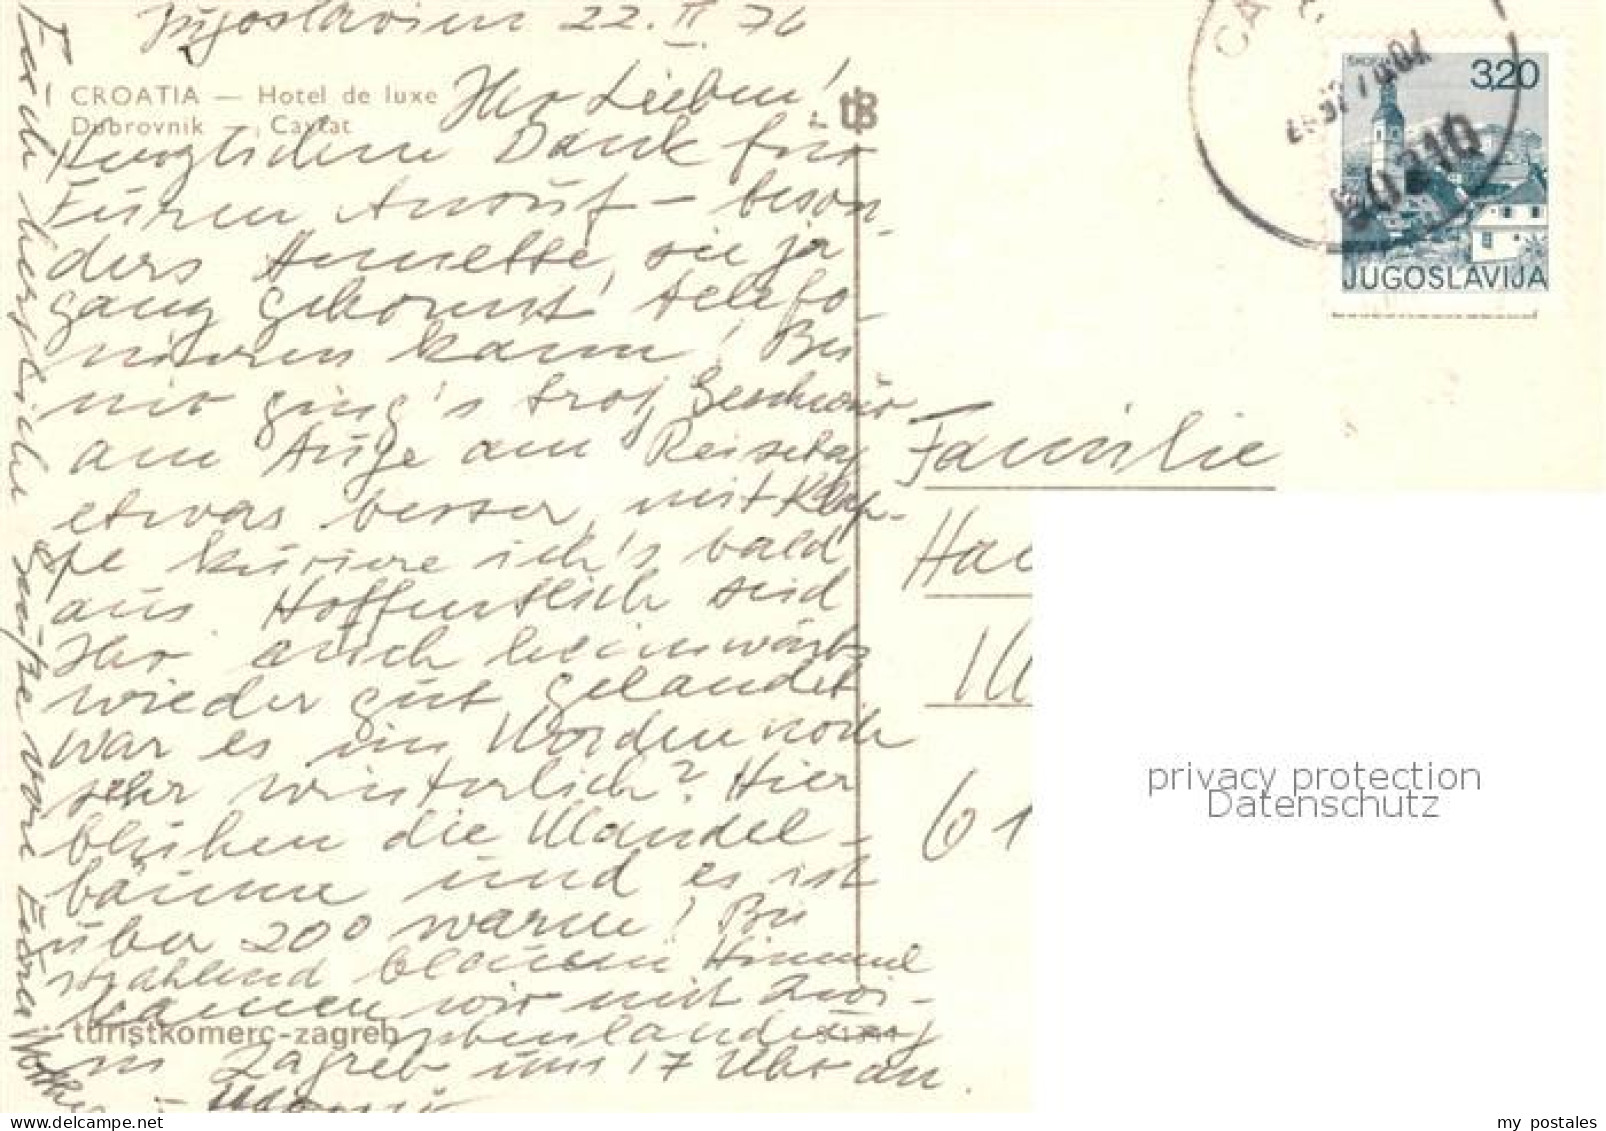 Jugoslavien 22. II. 76
CROATIA — Hotel de luxe
Dubrovnik — Cavtat
Ihr Lieben!
Herzlichen Dank für
Euren Anruf – beson-
ders Annette, sie ja
ganz gekonnt telefo-
nieren kann! Bei
mir ging's trotz Geschwür
am Auge am Reisetag
etwas besser, mit Klap-
pe kuriere ich's bald
aus Hoffentlich seid
Ihr auch heimwärts
wieder gut gelandet
war es im Norden noch
sehr winterlich? Hier
blühen die Mandel-
bäume und es ist
über 20° warm! Bei
strahlend blauem Himmel
kamen wir mit Zwi-
schenlandung
in Zagreb um 17 Uhr an.
Euch herzliche Grüße von Eurer
turistkomerc-zagreb
tB
3,20
JUGOSLAVIJA
50210
Familie
Ha
61
privacy protection
Datenschutz
my_postales
delcampe.net